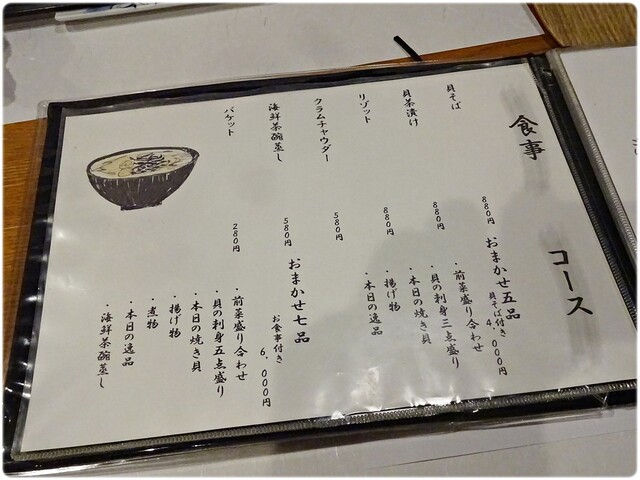 食事
貝そば 880円
貝茶漬け 880円
リゾット 880円
クラムチャウダー 580円
海鮮茶碗蒸し 580円
バケット 280円
コース
おまかせ五品
貝そば付き 4,000円
・前菜盛り合わせ
・貝の刺身三点盛り
・本日の焼き貝
・揚げ物
・本日の逸品
おまかせ七品
お食事付き 6,000円
・前菜盛り合わせ
・貝の刺身五点盛り
・本日の焼き貝
・揚げ物
・煮物
・本日の逸品
・海鮮茶碗蒸し